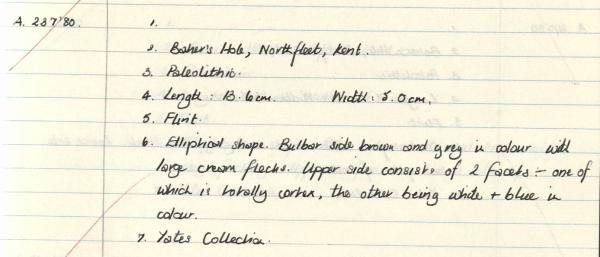 A. 237'80. 1.
2. Baker's Hole, Northfleet, Kent.
3. Paleolithic.
4. Length: 13.6cm. Width: 5.0cm.
5. Flint.
6. Elliptical shape. Bulbar side brown and grey in colour with
large cream flecks. Upper side consists of 2 facets :- one of
which is totally cortex, the other being white + blue in
colour.
7. Yates Collection.